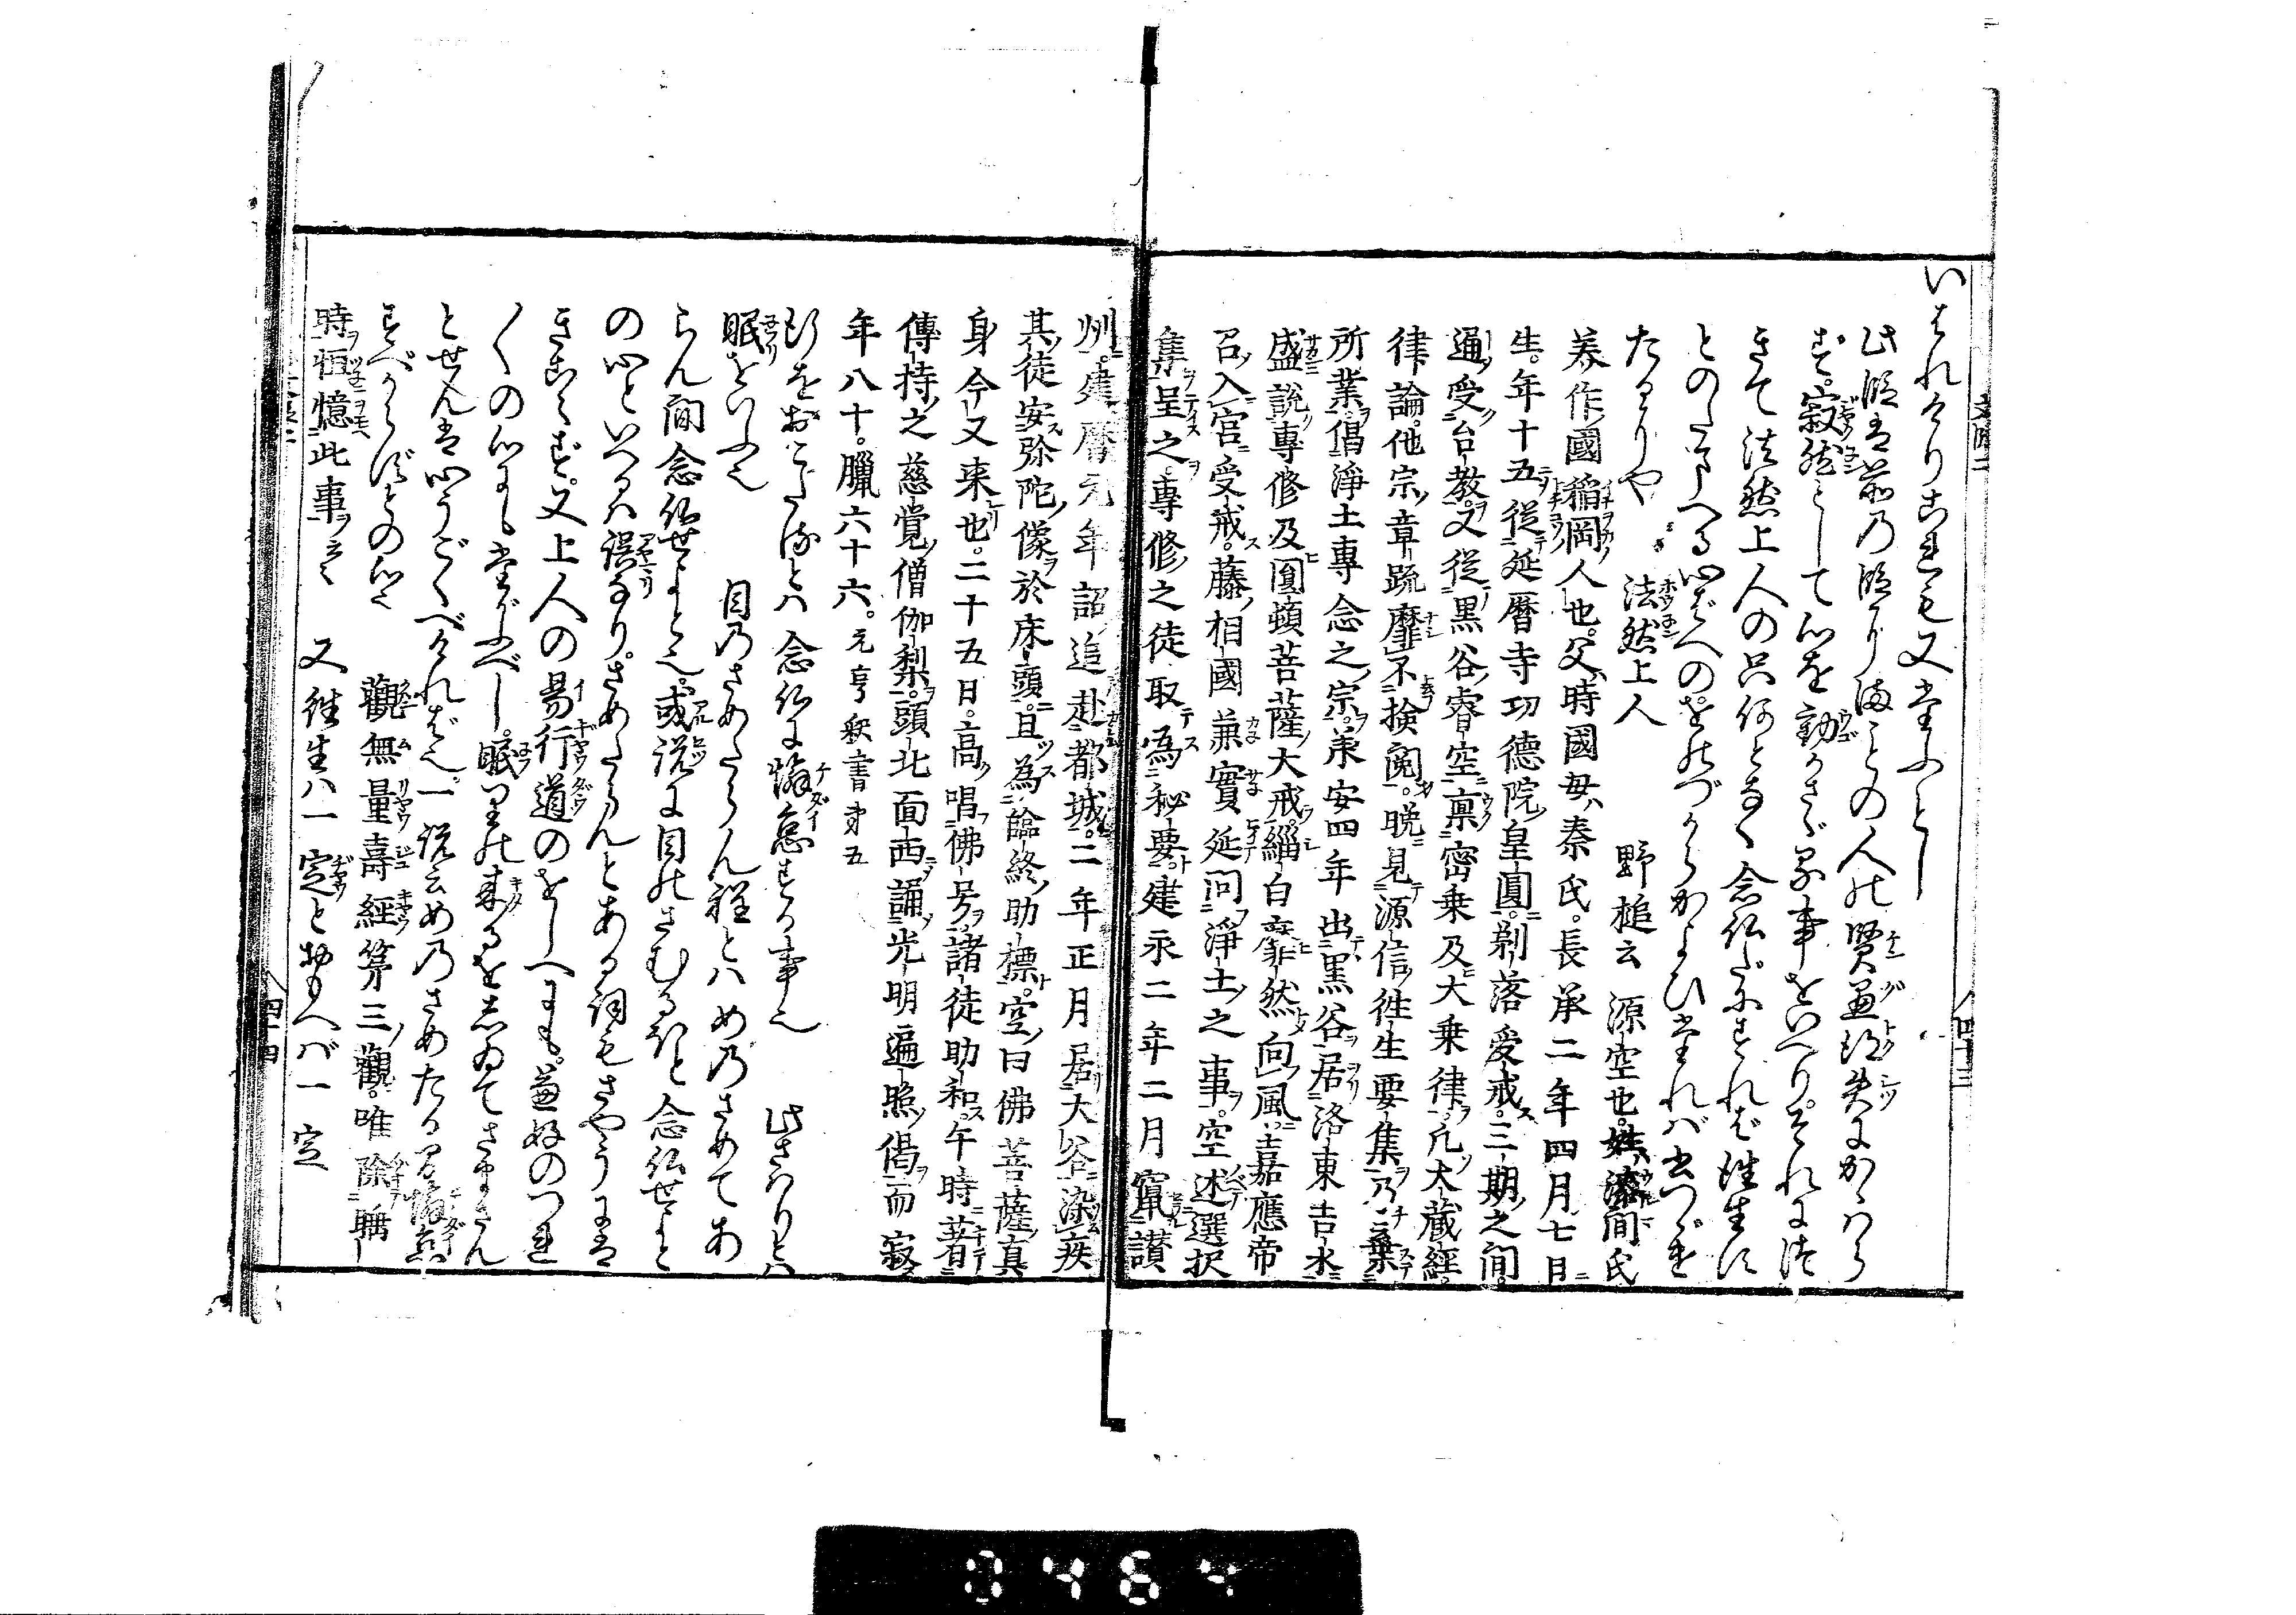 いはれけりこれも又たふとし
此段は前の段にまことの人の賢愚得失にかゝはら
ず。寂然として心を動かさゞる事をいへり。それにつ
きて法然上人の只何となく念仏だにすれば往生に
とのたまへる心ばへのをのづからかよひたれば書つゞけ
たるりや　法然上人　野槌云　源空也。姓漆間氏
美作國稲岡人也。父時國母秦氏。長承二年四月七日
生。年十五從延暦寺功德院皇圓。剃落受戒。三期之間。
通受台教。又從黒谷睿空禀密乗及大乗律。凡大藏經。
律論。他宗章疏靡不撿閲。晩見源信往生要集乃棄
所業。倡淨土專念之宗。承安四年出黒谷居洛東吉水
盛説專修及圓頓菩薩大戒。緇白靡然向風。嘉應帝
召入宮受戒。藤相國兼實延問淨土之事。空述選択
集呈之。專修之徒取為秘要。建永二年二月竄讃
州。建暦元年詔追赴都城。二年正月居大谷染疾
其徒安弥陀像於床頭。且為臨終助標。空曰佛菩薩真
身今又来也。二十五日。高唱佛号。諸徒助和。午時著
傳持之慈覚僧伽梨。頭北面西誦光明遍照偈而寂
年八十。臘六十六。元亨釈書第五
行をおこたる　とは念仏に懈怠する事也　此さはりとは
眠をいふ也　目のさめたらん程とはめのさめてあ
らん間念仏せよと也。或説に目のさむるほど念仏せよと
の心といへるは誤なり。さめたらんとある詞もさやうには
きこえず。又上人の易行道のをしへにも。兼好のつれ
〱の心にもたがふべし。眠りの来るをしゐてさまさん
とせんは心うごくべければ也。一説云めのさめたる間懈怠
すべからずとの心也　觀無量壽經第三觀。唯除睡
時恒憶此事云々　又往生ハ一定と思へバ一定